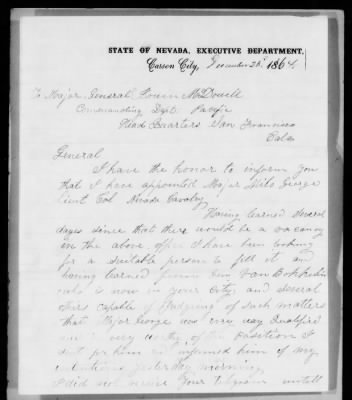 STATE OF NEVADA, EXECUTIVE DEPARTMENT,
Carson City, December 1864.
To Major General Irwin McDowell
Commanding Dept. Pacific
Head Quarters San Francisco
Cala
General
I have the honor to inform you
that I have appointed Major Milo George
Lieut Col Nevada Cavalry
Having learned several
days since that there would be a vacancy
in the above office I have been looking
for a suitable person to fill it and
having learned from
who is now in your City and several
others capable of Judging of such matters
that Major George was every way Qualified
and is very worthy of the position I
sent for him and informed him of my
intentions yesterday morning
I did not receive your telegram untill